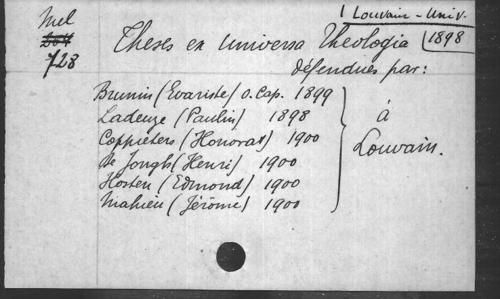 Mel
204
728
1 Louvain - Univ.
1898
Theses ex Universa Theologia
défendues par:
Brunin (Evariste) O. Cap. 1899
Ladeuze (Paulin) 1898
Coppieters (Honorat) 1900
De Jongh (Henri) 1900
Hosten (Edmond) 1900
Mahieu (Jérôme) 1900
à
Louvain.